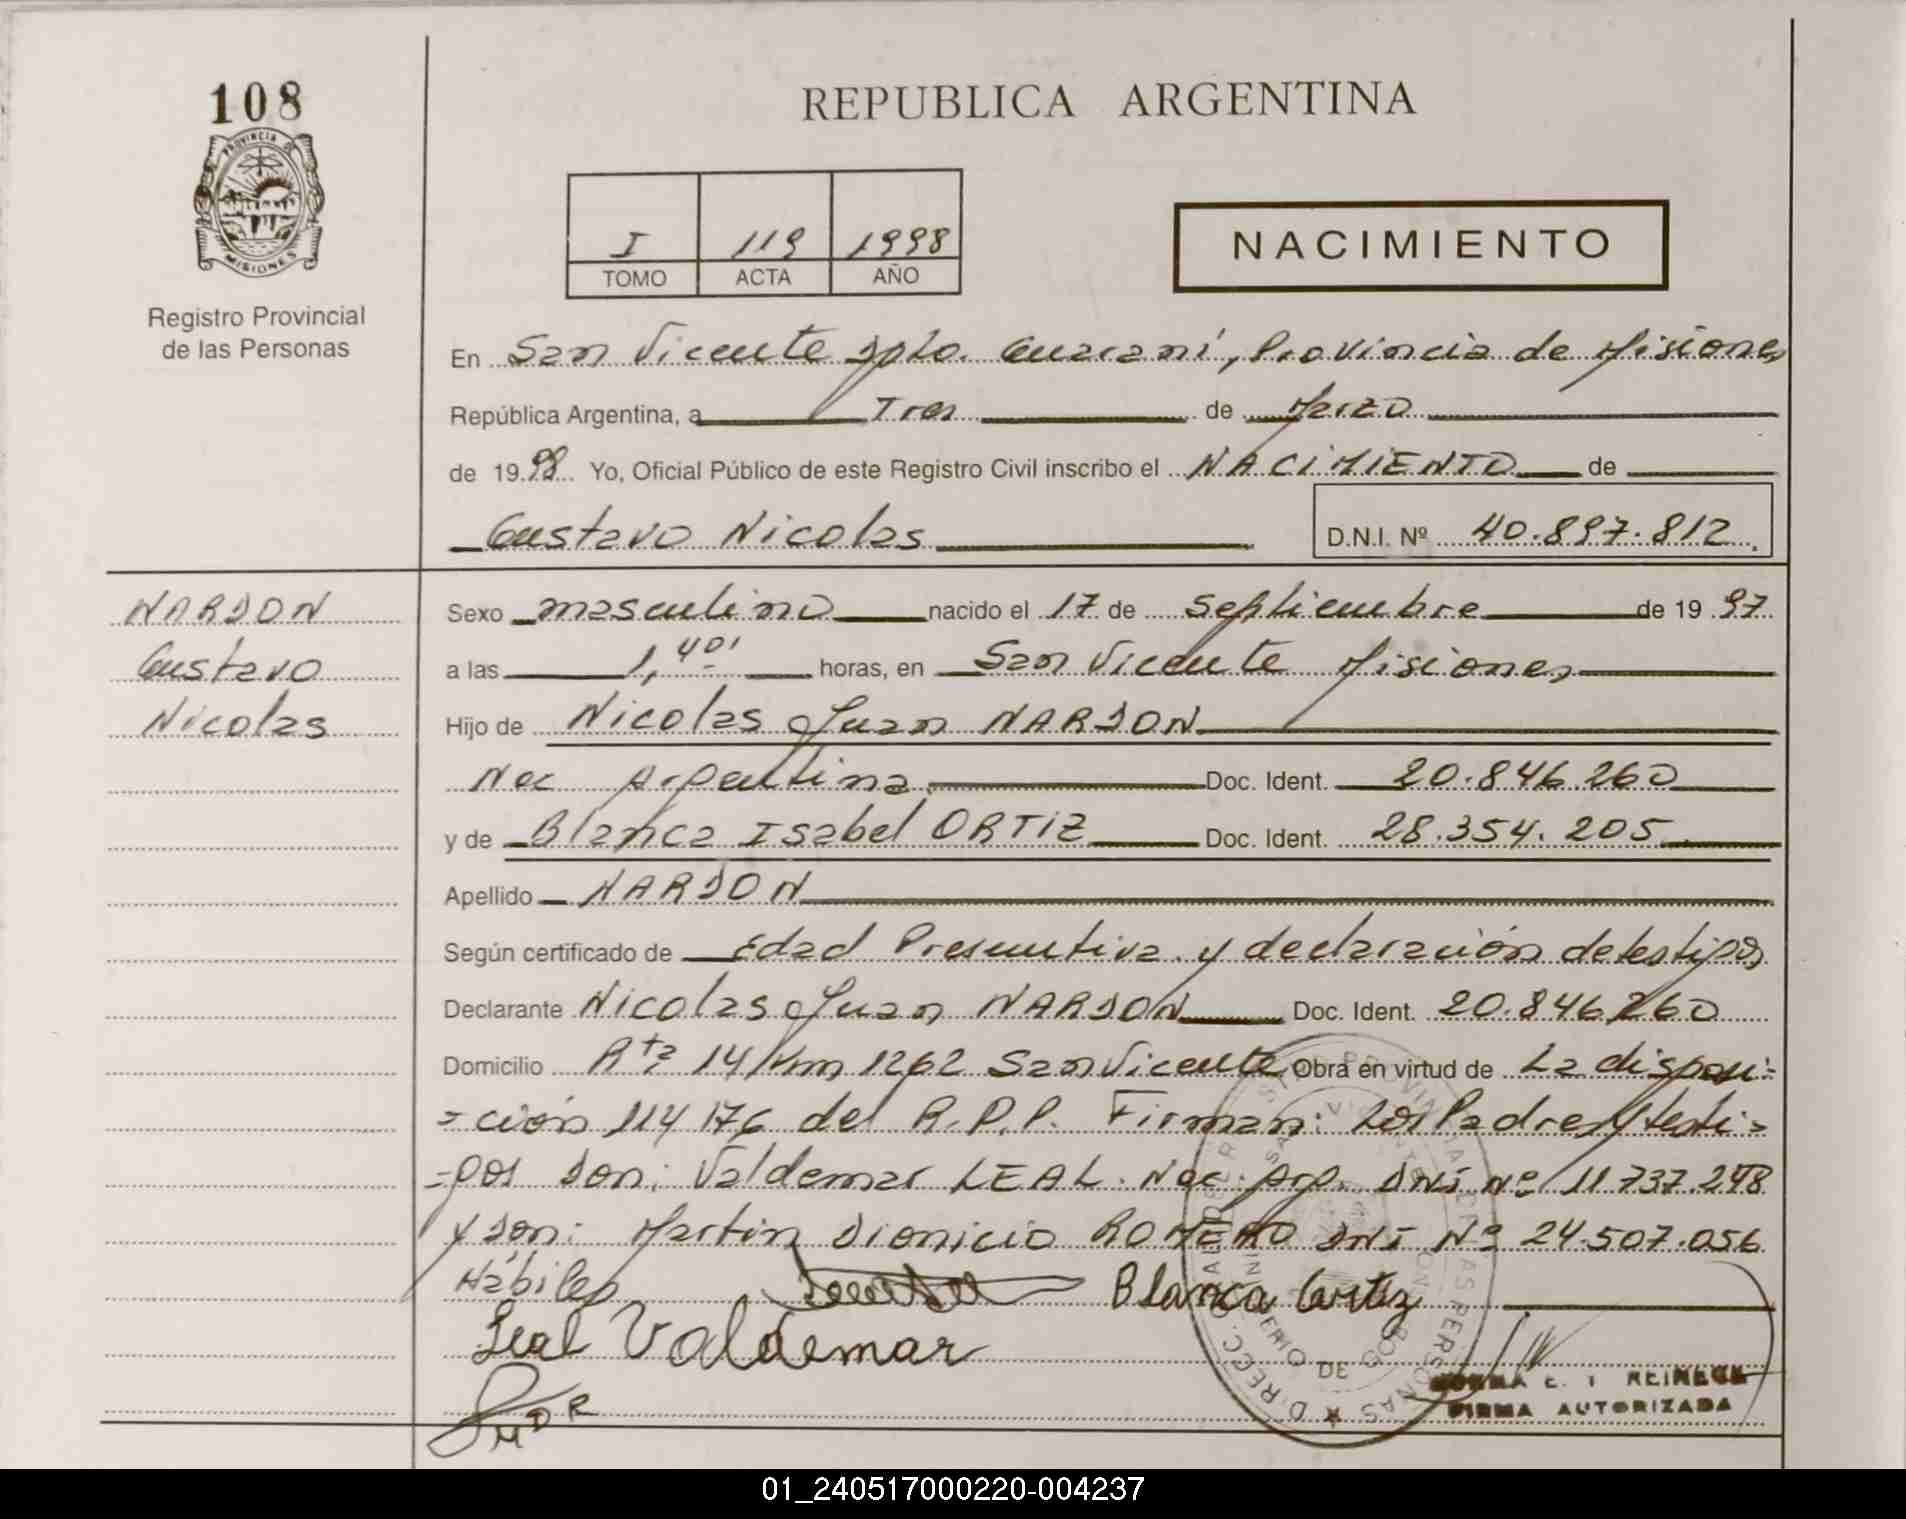 108
REPUBLICA ARGENTINA
PROVINCIA DE
MISIONES
Registro Provincial
de las Personas
I 119 1998
TOMO ACTA AÑO
NACIMIENTO
En San Vicente Dpto. Guaraní, Provincia de Misiones
República Argentina, a Tres de Marzo
de 1998 Yo, Oficial Público de este Registro Civil inscribo el NACIMIENTO de
Gustavo Nicolas D.N.I. Nº 40.897.812
NARDON
Gustavo
Nicolas
Sexo masculino nacido el 17 de Septiembre de 1997
a las 1,40' horas, en San Vicente Misiones
Hijo de Nicolas Juan NARDON
Nac Argentina Doc. Ident. 20.846.260
y de Blanca Isabel ORTIZ Doc. Ident. 28.354.205
Apellido NARDON
Según certificado de Edad Presuntiva y declaración de testigos
Declarante Nicolas Juan NARDON Doc. Ident. 20.846.260
Domicilio Rta 14 Km 1262 San Vicente Obra en virtud de La disposi-
-ción 114/76 del R.P.P. Firman: Los Padres y testi-
-gos Don: Valdemar LEAL Nac. Arg. DNI Nº 11.737.248
y Don: Martin Dionicio ROMERO DNI Nº 24.507.056
Hábiles Blanca Ortiz
Leal Valdemar
MDR
E. REINECK
FIRMA AUTORIZADA
01_240517000220-004237